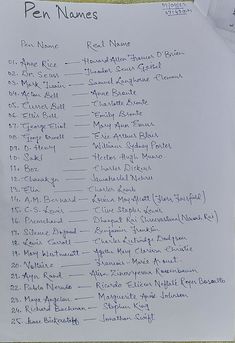 Pen Names
Pen Name Real Name
01. Anne Rice — Howard Allen Frances O'Brien
02. Dr. Seuss — Theodor Seuss Geisel
03. Mark Twain — Samuel Langhorne Clemens
04. Acton Bell — Anne Bronte
05. Currer Bell — Charlotte Bronte
06. Ellis Bell — Emily Bronte
07. George Eliot — Mary Ann Evans
08. George Orwell — Eric Arthur Blair
09. O. Henry — William Sydney Porter
10. Saki — Hector Hugh Munro
11. Boz — Charles Dickens
12. Chanakya — Jawaharlal Nehru
13. Elia — Charles Lamb
14. A.M. Bernard — Louisa May Alcott
15. C.S. Lewis — Clive Staples Lewis
16. Premchand — Dhanpat Rai Shrivastava (Nawab Rai)
17. Silence Dogood — Benjamin Franklin
18. Lewis Carroll — Charles Lutwidge Dodgson
19. Mary Westmacott — Agatha Mary Clarissa Christie
20. Voltaire — Francois-Marie Arouet
21. Ayn Rand — Alisa Zinovyevna Rosenbaum
22. Pablo Neruda — Ricardo Eliecer Neftali Reyes Basoalto
23. Maya Angelou — Marguerite Annie Johnson
24. Richard Bachman — Stephen King
25. Isaac Bickerstaff — Jonathan Swift